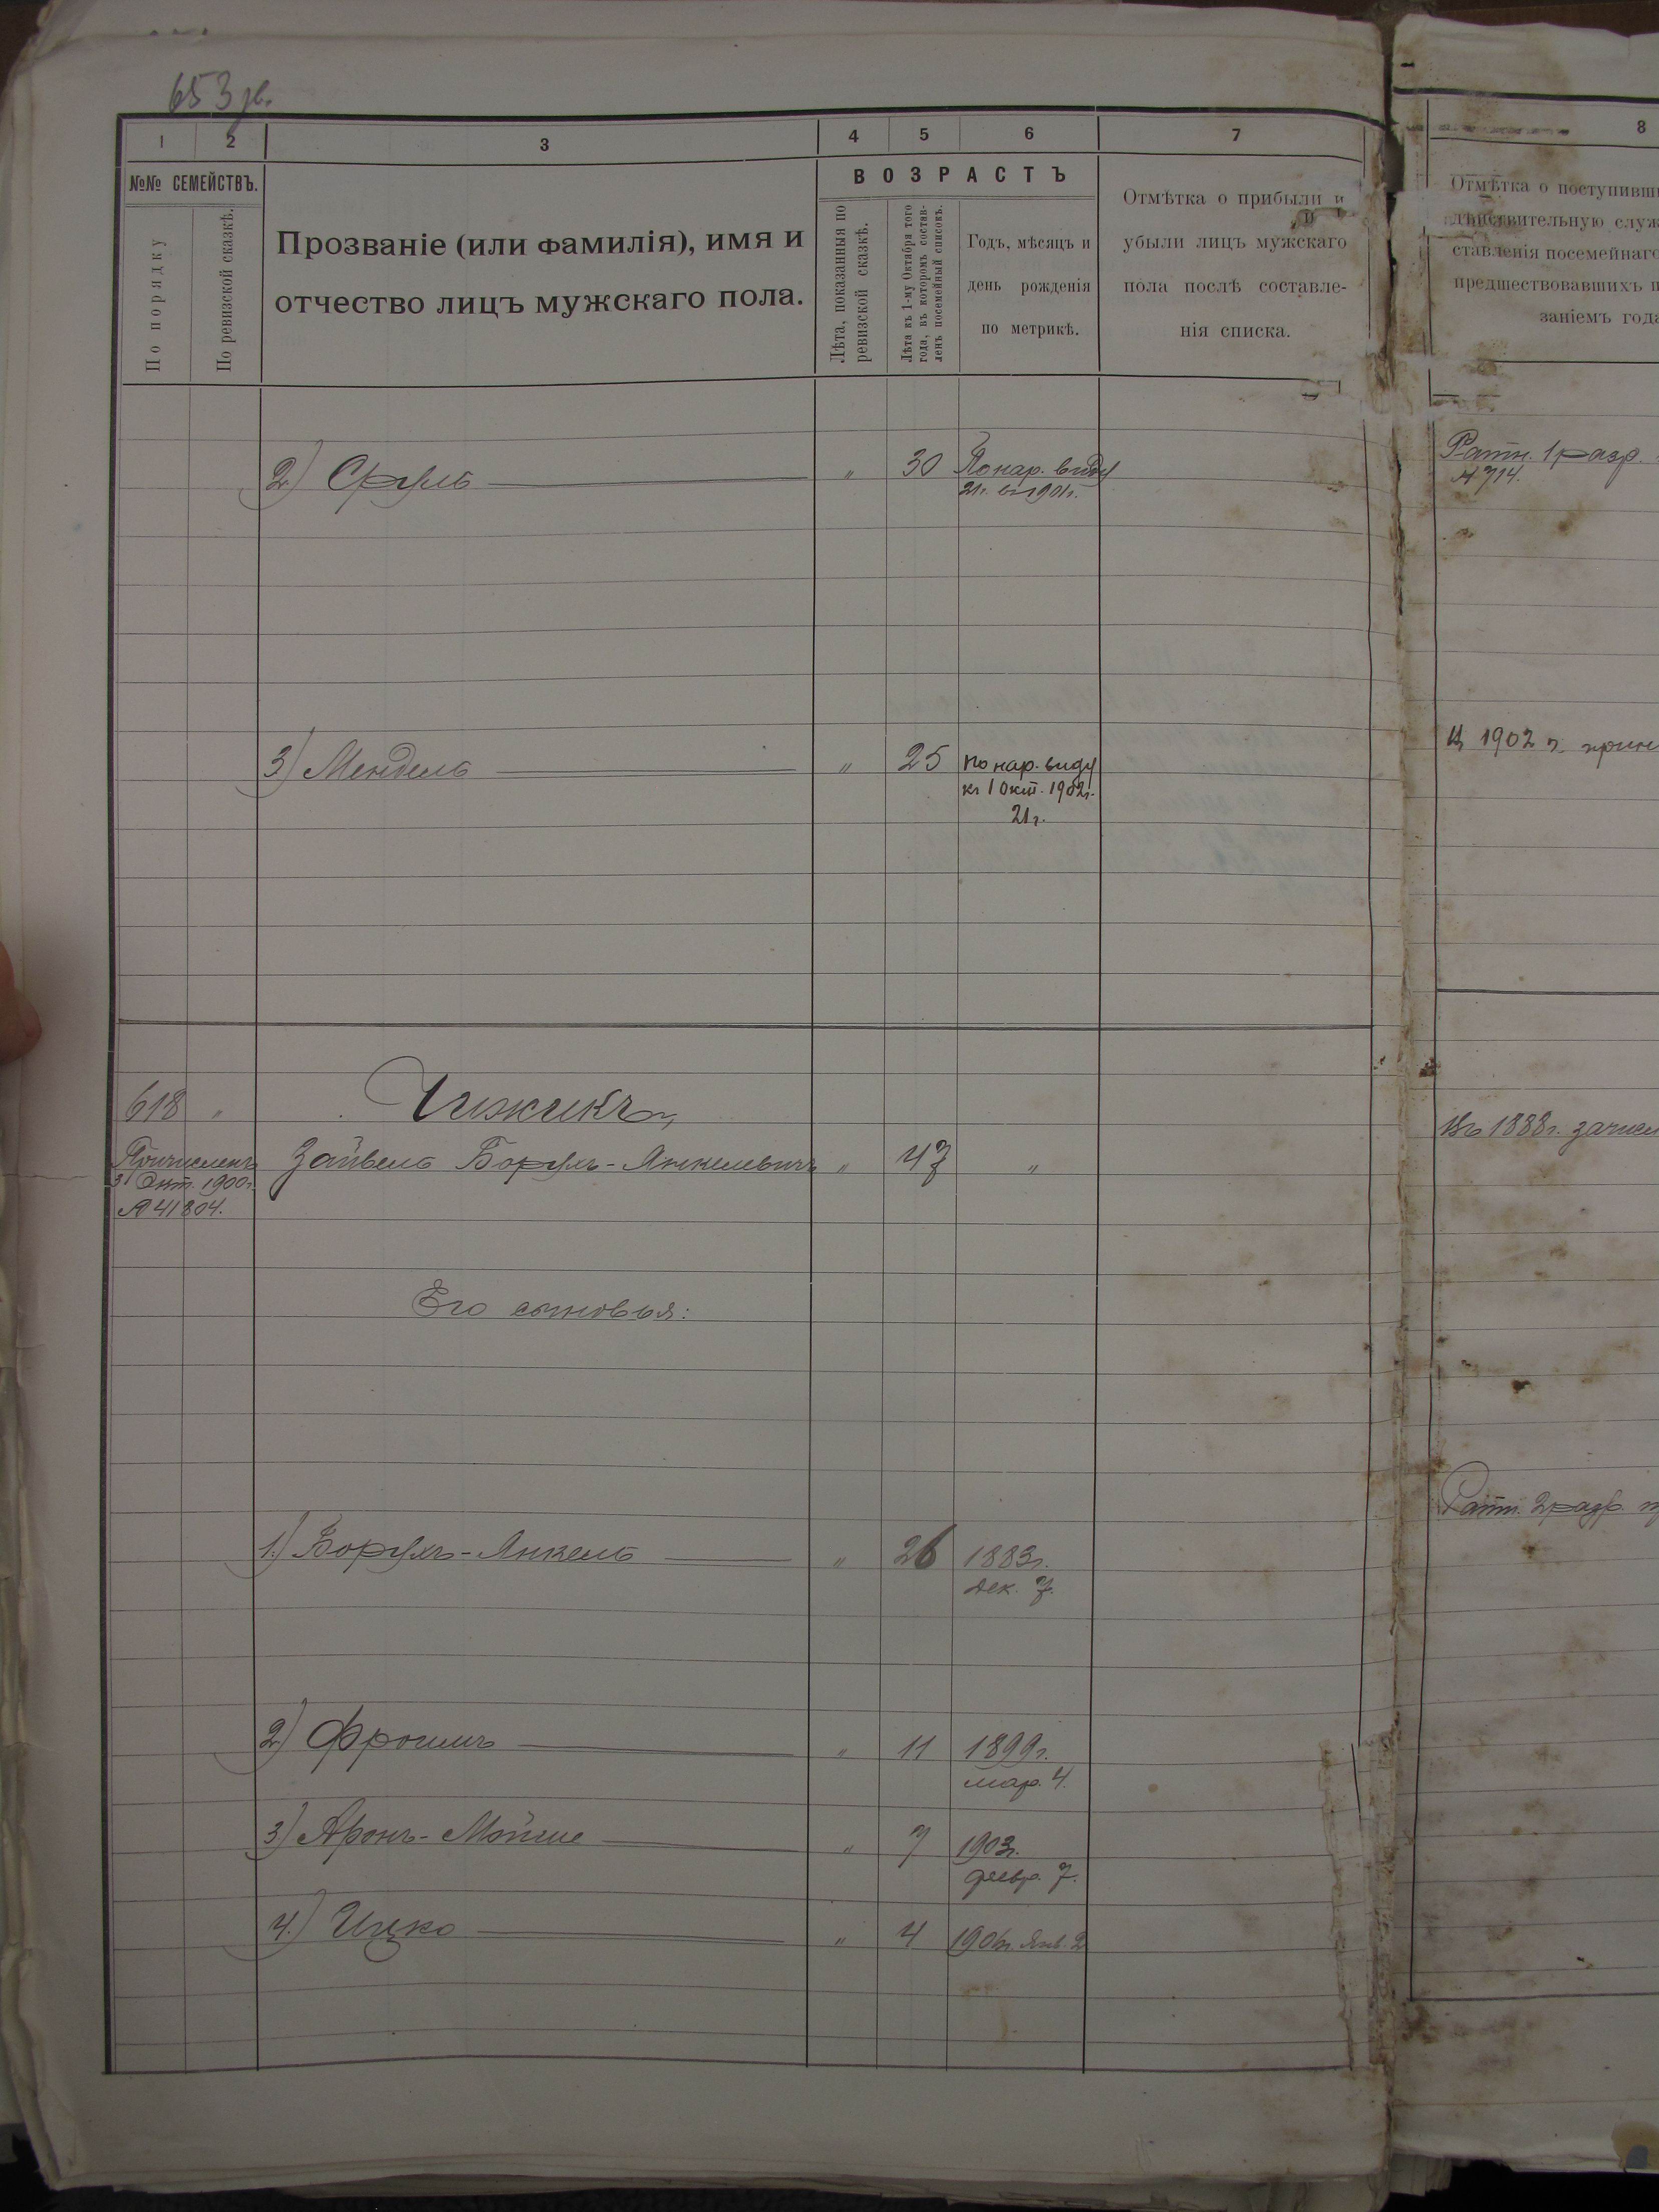 653 зв.
1 2 3 4 5 6 7 8
№№ СЕМЕЙСТВЪ.
По порядку
По ревизской сказкѣ.
Прозваніе (или фамилія), имя и
отчество лицъ мужскаго пола.
ВОЗРАСТЪ
Лѣта, показанныя по
ревизской сказкѣ.
Лѣта къ 1-му Октября того
года, въ которомъ состав-
ленъ посемейный списокъ.
Годъ, мѣсяцъ и
день рожденія
по метрикѣ.
Отмѣтка о прибыли и
убыли лицъ мужскаго
пола послѣ составле-
нія списка.
Отмѣтка о поступивш
дѣйствительную служ
ставленія посемейнаго
предшествовавшихъ п
заніемъ года
2) Сруль " 30 По нар. виду
21 г. въ 1901 г.
Ратн. 1 разр.
№ 714.
3) Мендель " 25 по нар. виду
къ 1 Окт. 1902 г.
21 г.
Въ 1902 г. прин
618 " Чижикъ,
Причисленъ
31 Окт. 1900 г.
№ 41804.
Зайвель Борухъ-Янкелевичъ " 47 "
Въ 1888 г. зачисл
Его сыновья:
1.) Борухъ-Янкель " 26 1883 г.
Дек. 7.
Ратн. 2 разр.
2) Фроимъ " 11 1899 г.
мар. 4.
3) Аронъ-Мойше " 7 1903 г.
февр. 7.
4.) Ицко " 4 1906 г. Янв. 2